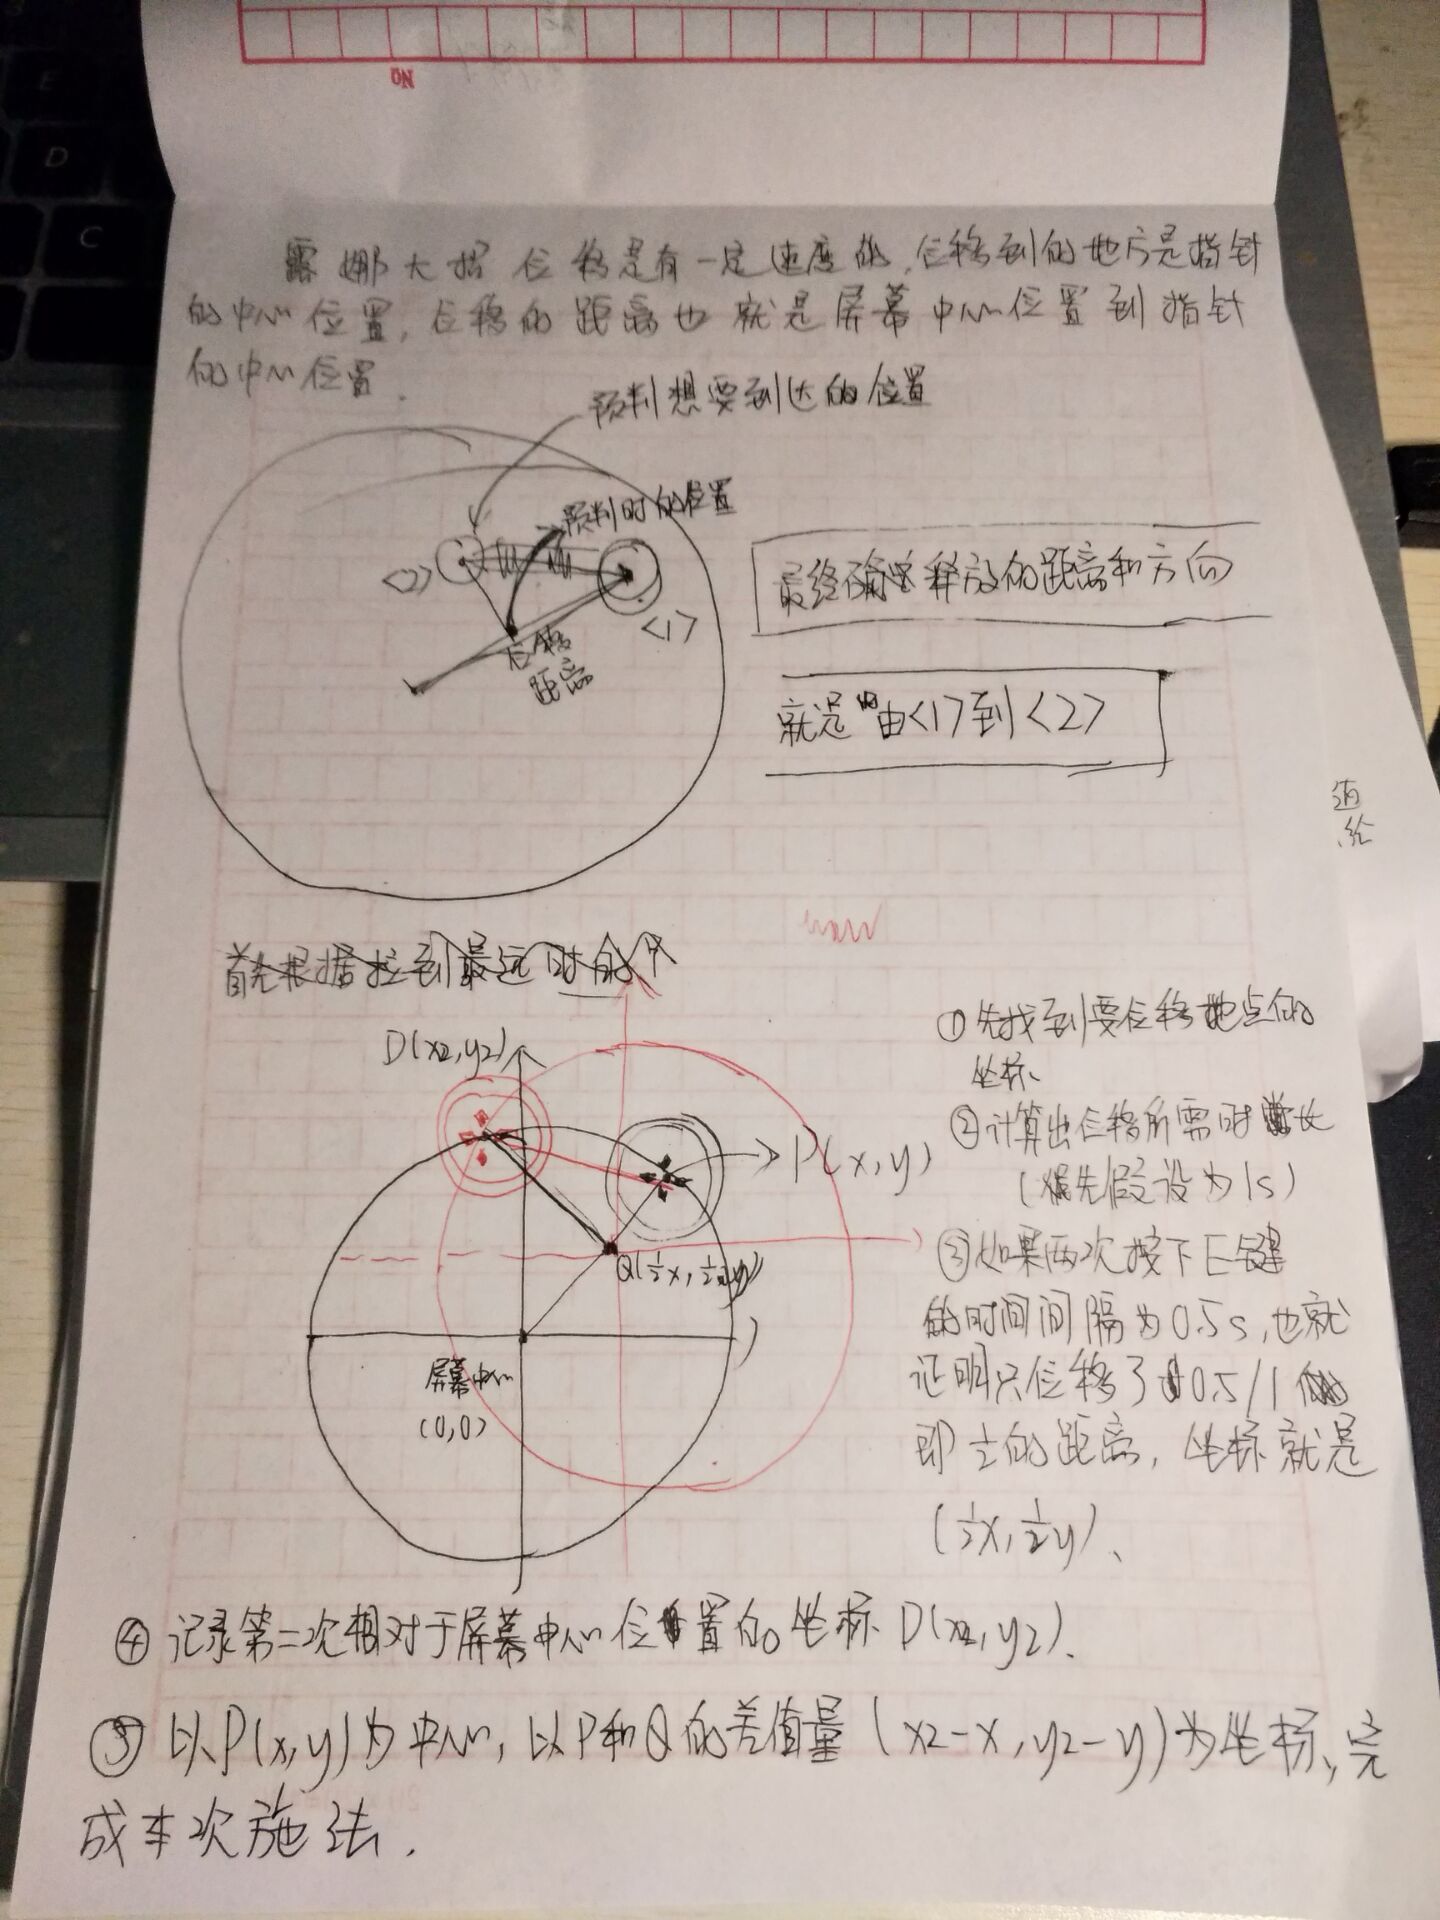 NO
E
D
C
露娜大招位移是有一定速度的,位移到的地方是指针
的中心位置,位移的距离也就是屏幕中心位置到指针
的中心位置.
预判想要到达的位置
预判时的位置
<2>
<1>
位移
距离
最终确定释放的距离和方向
就是由<1>到<2>
首先根据拉到最远时的
D(x2,y2)
P(x,y)
Q(½x,½y)
屏幕中心
(0,0)
①先找到要位移地点的
坐标、
②计算出位移所需时长
(先假设为1s)
③如果两次按下E键
的时间间隔为0.5s,也就
证明只位移了0.5/1
即½的距离,坐标就是
(½x,½y)、
④记录第二次相对于屏幕中心位置的坐标D(x2,y2)、
⑤以P(x,y)为中心,以P和Q的差值量(x2-x,y2-y)为坐标、完
成本次施法.